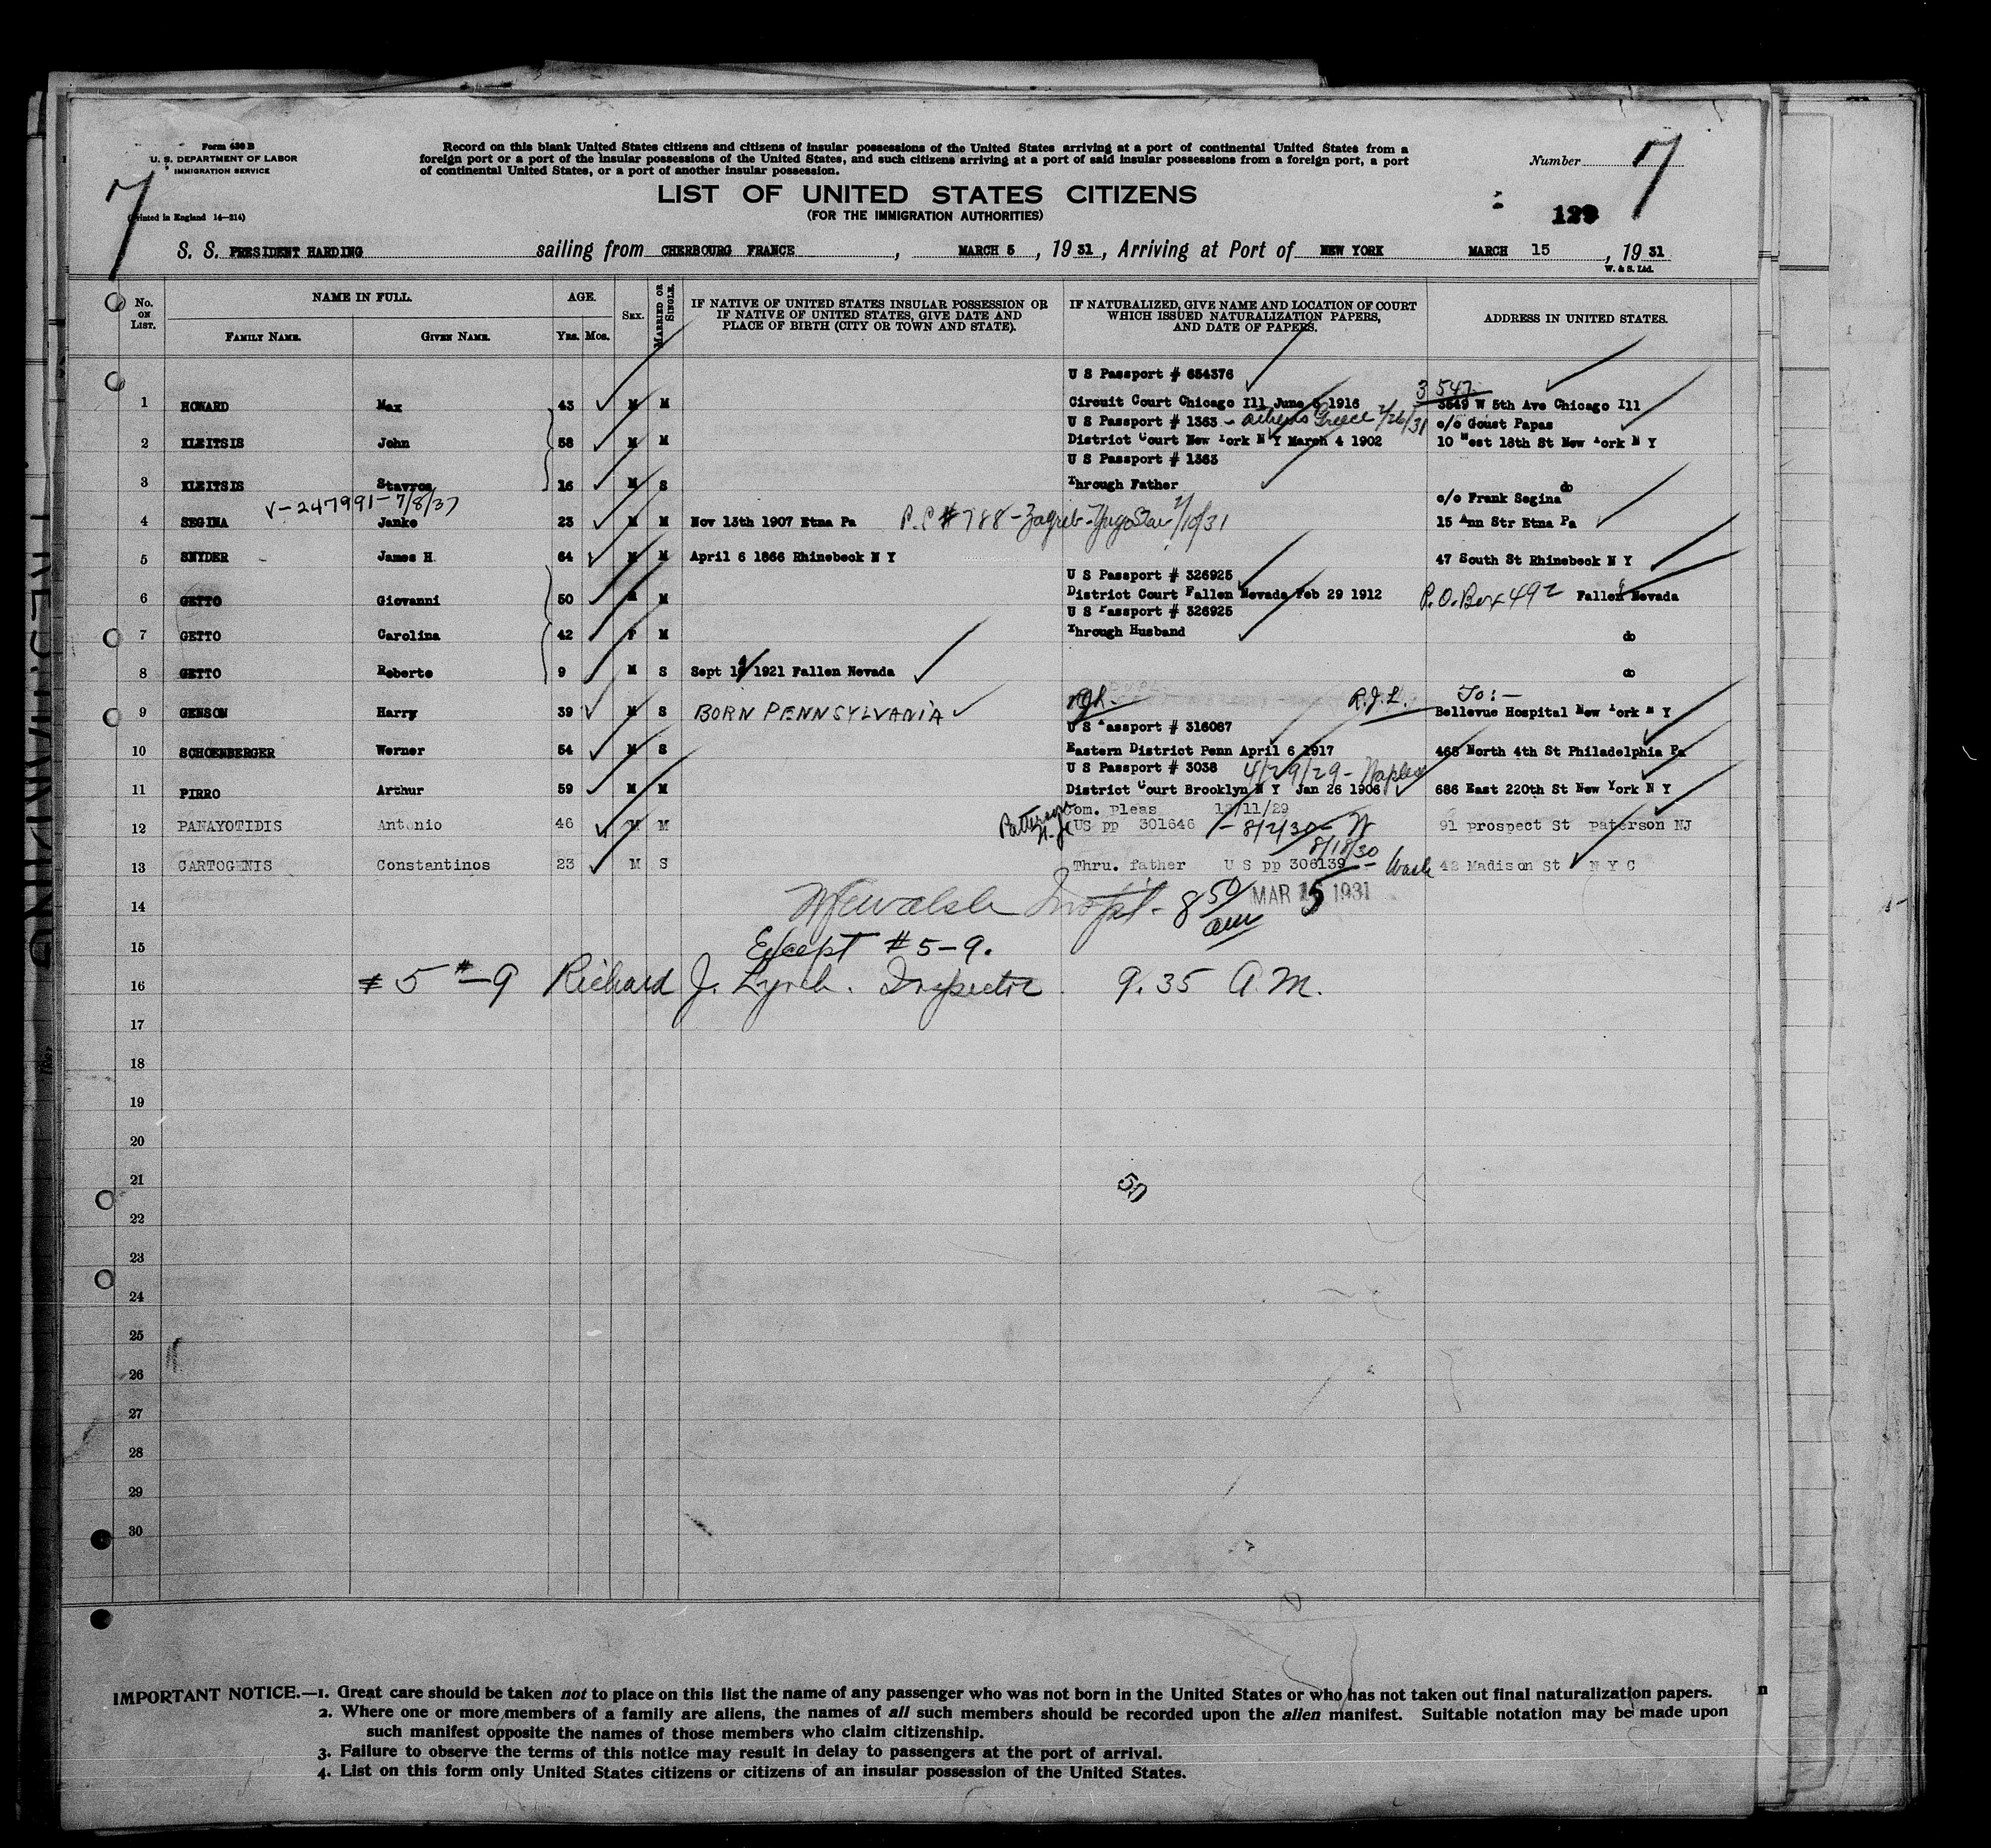 Form 436 B
U. S. DEPARTMENT OF LABOR
IMMIGRATION SERVICE
(Printed in England 14—214)
7
Record on this blank United States citizens and citizens of insular possessions of the United States arriving at a port of continental United States from a
foreign port or a port of the insular possessions of the United States, and such citizens arriving at a port of said insular possessions from a foreign port, a port
of continental United States, or a port of another insular possession.
Number 7
LIST OF UNITED STATES CITIZENS
(FOR THE IMMIGRATION AUTHORITIES)
129
S. S. PRESIDENT HARDING sailing from CHERBOURG FRANCE, MARCH 5, 1931, Arriving at Port of NEW YORK MARCH 15, 1931
W. & S. Ltd.
No. ON LIST. NAME IN FULL. AGE. SEX. MARRIED OR SINGLE. IF NATIVE OF UNITED STATES INSULAR POSSESSION OR IF NATIVE OF UNITED STATES, GIVE DATE AND PLACE OF BIRTH (CITY OR TOWN AND STATE). IF NATURALIZED, GIVE NAME AND LOCATION OF COURT WHICH ISSUED NATURALIZATION PAPERS, AND DATE OF PAPERS. ADDRESS IN UNITED STATES.
FAMILY NAME. GIVEN NAME. YRS. MOS.
U S Passport # 654376
3547
1 HOWARD Max 43 M M Circuit Court Chicago Ill June 6 1916 3549 W 5th Ave Chicago Ill
U S Passport # 1363 - Athens Greece 2/26/31 c/o Goust Papas
2 KLEITSIS John 58 M M District Court New York N Y March 4 1902 10 West 18th St New York N Y
U S Passport # 1363
3 KLEITSIS Stavros 16 M S Through Father do
V-247991-7/8/37 c/o Frank Segina
4 SEGINA Janko 23 M M Nov 13th 1907 Etna Pa P.P.#788-Zagreb-YugoSlav 2/10/31 15 Ann Str Etna Pa
5 SNYDER James H 64 M M April 6 1866 Rhinebeck N Y 47 South St Rhinebeck N Y
U S Passport # 326925
6 GETTO Giovanni 50 M M District Court Fallen Nevada Feb 29 1912 P.O. Box 492 Fallen Nevada
U S Passport # 326925
7 GETTO Carolina 42 F M Through Husband do
8 GETTO Roberto 9 M S Sept 19 1921 Fallen Nevada do
R.J.L. To:—
9 GENSON Harry 39 M S BORN PENNSYLVANIA Bellevue Hospital New York N Y
U S Passport # 316087
10 SCHOENBERGER Werner 54 M S Eastern District Penn April 6 1917 468 North 4th St Philadelphia Pa
U S Passport # 3038 4/29/29 - Naples
11 PIRRO Arthur 59 M M District Court Brooklyn N Y Jan 26 1906 686 East 220th St New York N Y
Patterson N.J. Com. Pleas 12/11/29
12 PANAYOTIDIS Antonio 46 M M US pp 301646 - 8/2/30 - W 91 prospect St paterson NJ
8/18/30
13 CARTOGENIS Constantinos 23 M S Thru. father U S pp 306139 - Wash 42 Madison St N Y C
14 Walsh Inspt- 8 50 am MAR 15 1931
15 Except #5-9.
16 #5 #-9 Richard J. Lynch. Inspector 9.35 A.M.
17
18
19
20
21 50
22
23
24
25
26
27
28
29
30
IMPORTANT NOTICE.—1. Great care should be taken not to place on this list the name of any passenger who was not born in the United States or who has not taken out final naturalization papers.
2. Where one or more members of a family are aliens, the names of all such members should be recorded upon the alien manifest. Suitable notation may be made upon
such manifest opposite the names of those members who claim citizenship.
3. Failure to observe the terms of this notice may result in delay to passengers at the port of arrival.
4. List on this form only United States citizens or citizens of an insular possession of the United States.